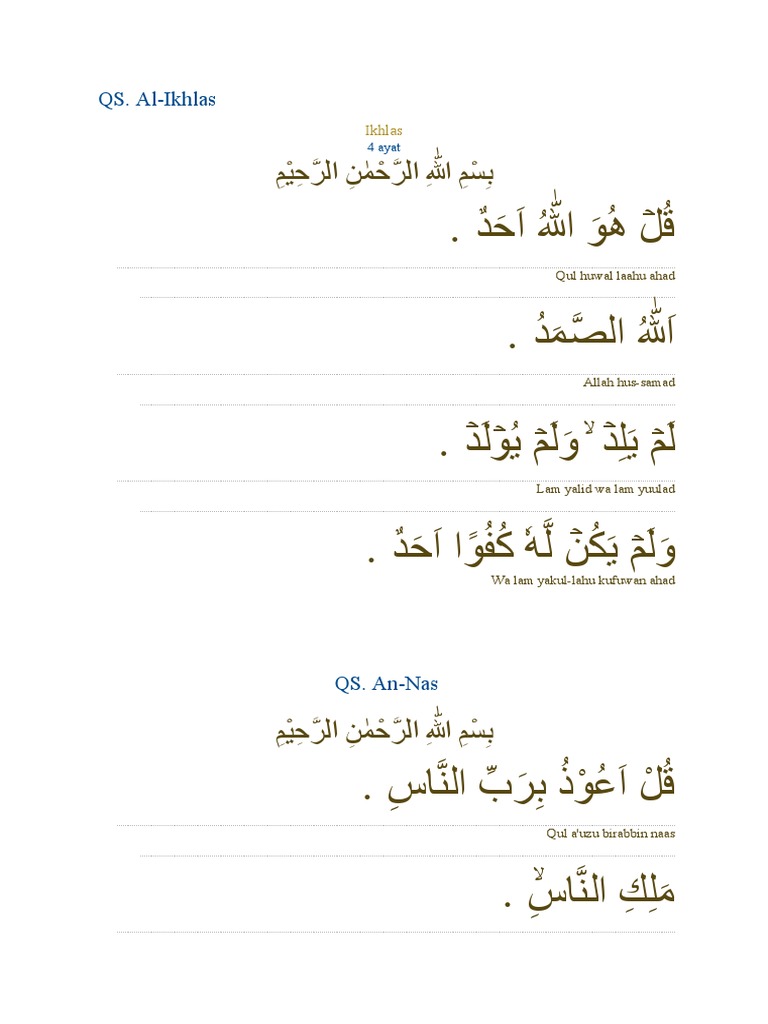 QS. Al-Ikhlas
Ikhlas
4 ayat
بِسْمِ اللّٰهِ الرَّحْمٰنِ الرَّحِيْمِ
قُلْ هُوَ اللّٰهُ اَحَدٌ .
Qul huwal laahu ahad
اَللّٰهُ الصَّمَدُ .
Allah hus-samad
لَمْ يَلِدْ ۙ وَلَمْ يُوْلَدْ .
Lam yalid wa lam yuulad
وَلَمْ يَكُنْ لَّهٗ كُفُوًا اَحَدٌ .
Wa lam yakul-lahu kufuwan ahad
QS. An-Nas
بِسْمِ اللّٰهِ الرَّحْمٰنِ الرَّحِيْمِ
قُلْ اَعُوْذُ بِرَبِّ النَّاسِ .
Qul a'uzu birabbin naas
مَلِكِ النَّاسِۙ .